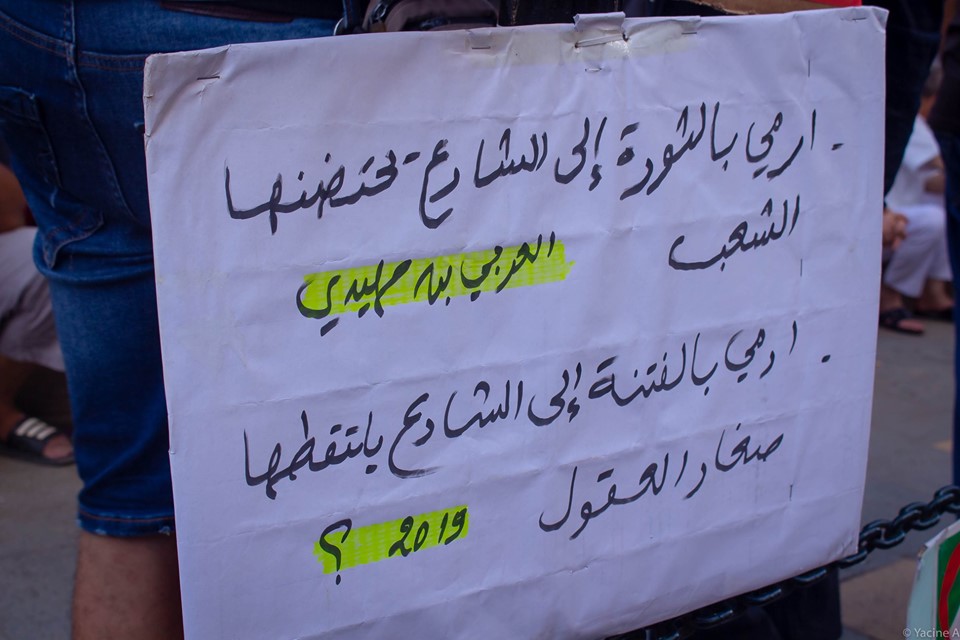 - ارمي بالثورة إلى الشارع تحتضنها
الشعب
العربي بن مهيدي
- ارمي بالفتنة إلى الشارع يلتقطها
صغار العقول
2019 ؟
© Yacine A